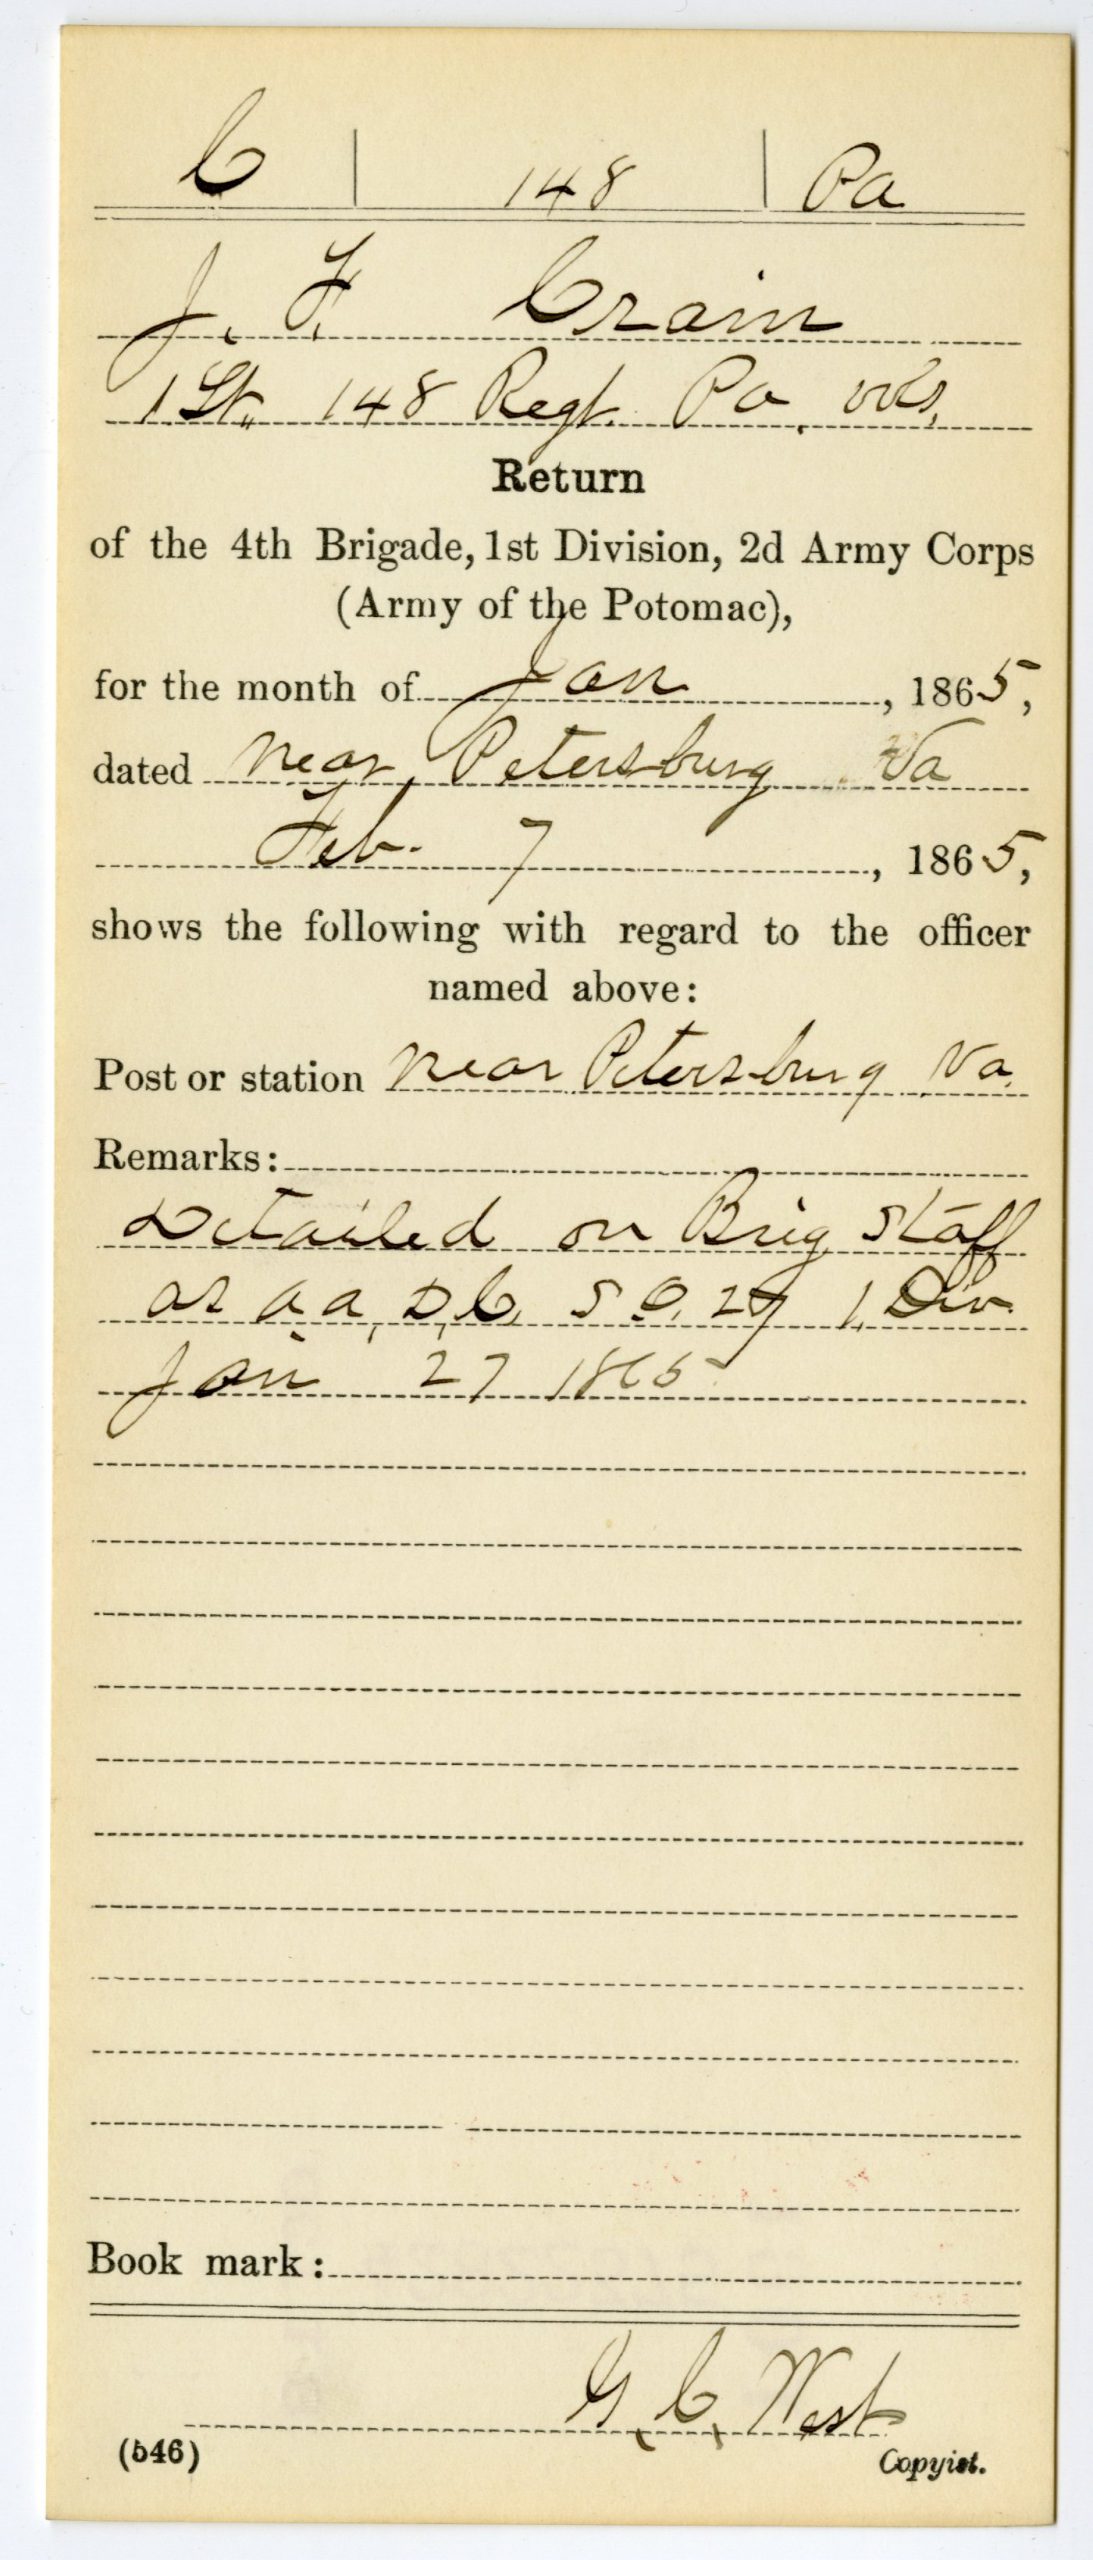 C | 148 | Pa
J. F. Crain
1 Lt. 148 Regt. Pa. vols.
Return
of the 4th Brigade, 1st Division, 2d Army Corps
(Army of the Potomac),
for the month of Jan, 1865,
dated near Petersburg Va
Feb. 7, 1865,
shows the following with regard to the officer
named above:
Post or station near Petersburg Va.
Remarks:
Detailed on Brig Staff
as a a, D, C, S.O. 27 1, Div.
Jan 27 1865
Book mark:
G. C. West
(546)
Copyist.